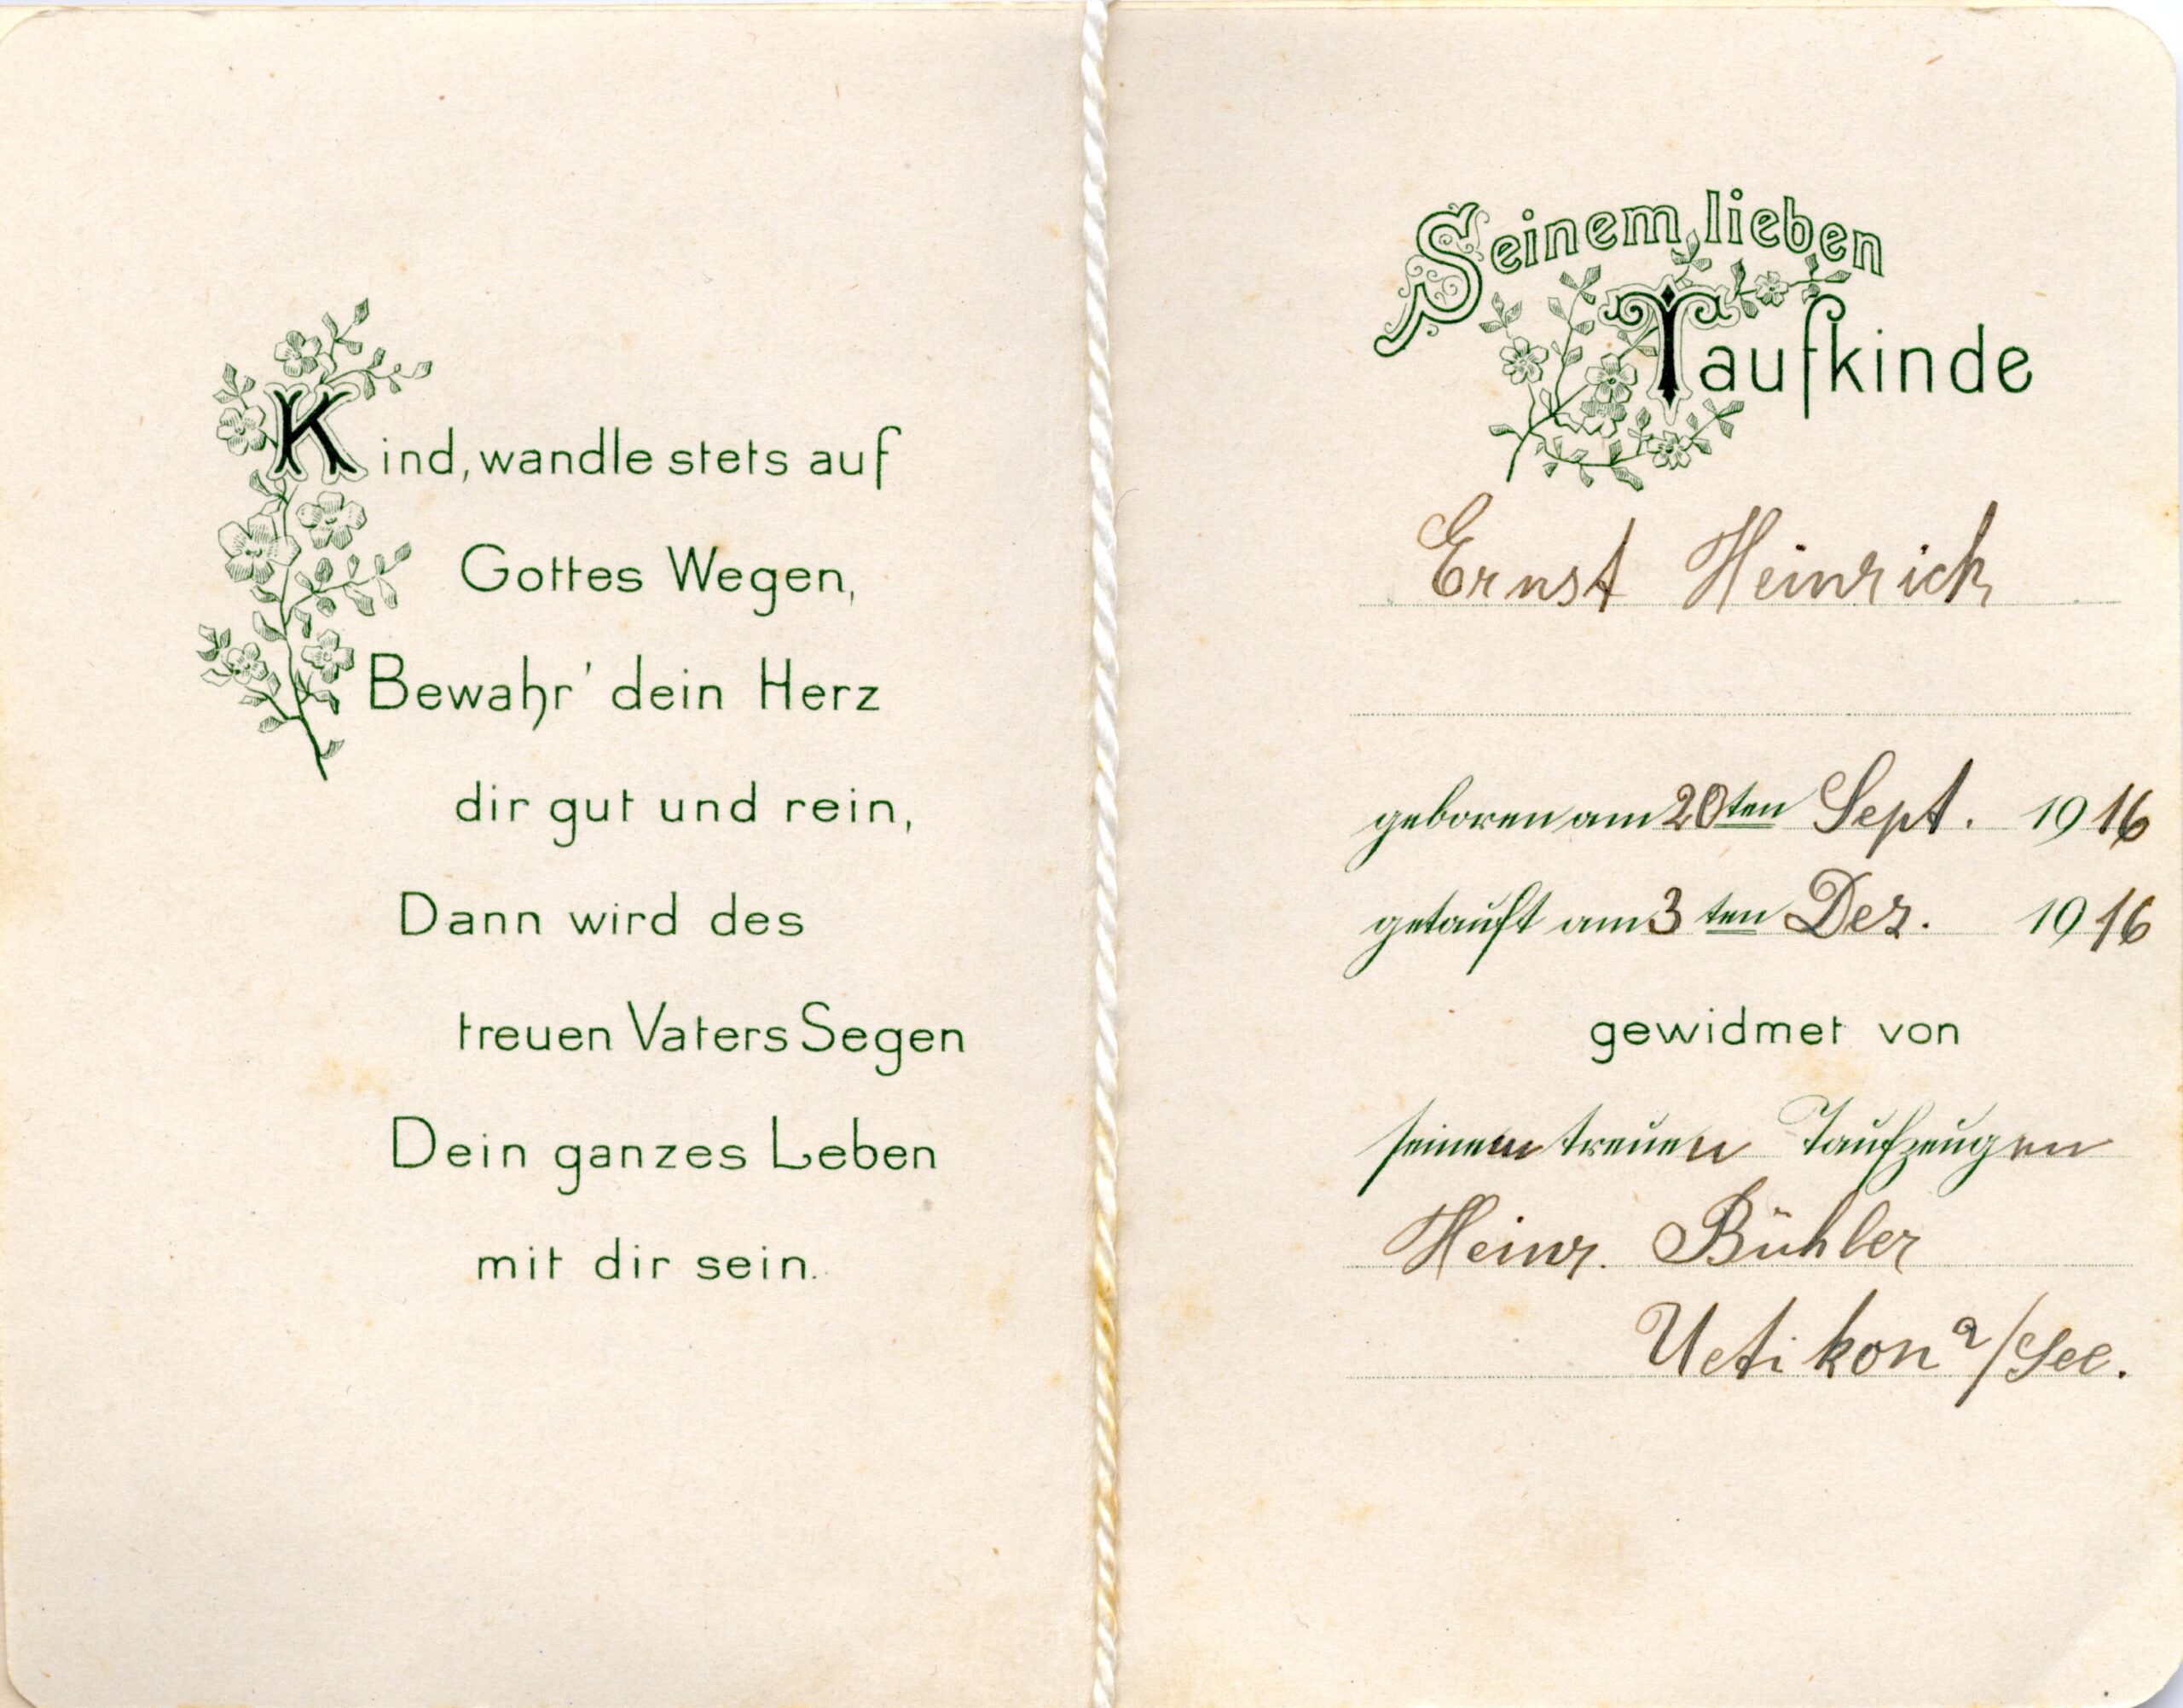 Kind, wandle stets auf
Gottes Wegen,
Bewahr' dein Herz
dir gut und rein,
Dann wird des
treuen Vaters Segen
Dein ganzes Leben
mit dir sein.
Seinem lieben
Taufkinde
Ernst Heinrich
geboren am 20ten Sept. 1916
getauft am 3ten Dez. 1916
gewidmet von
seinem treuen Taufzeugen
Heinr. Bühler
Uetikon a/See.